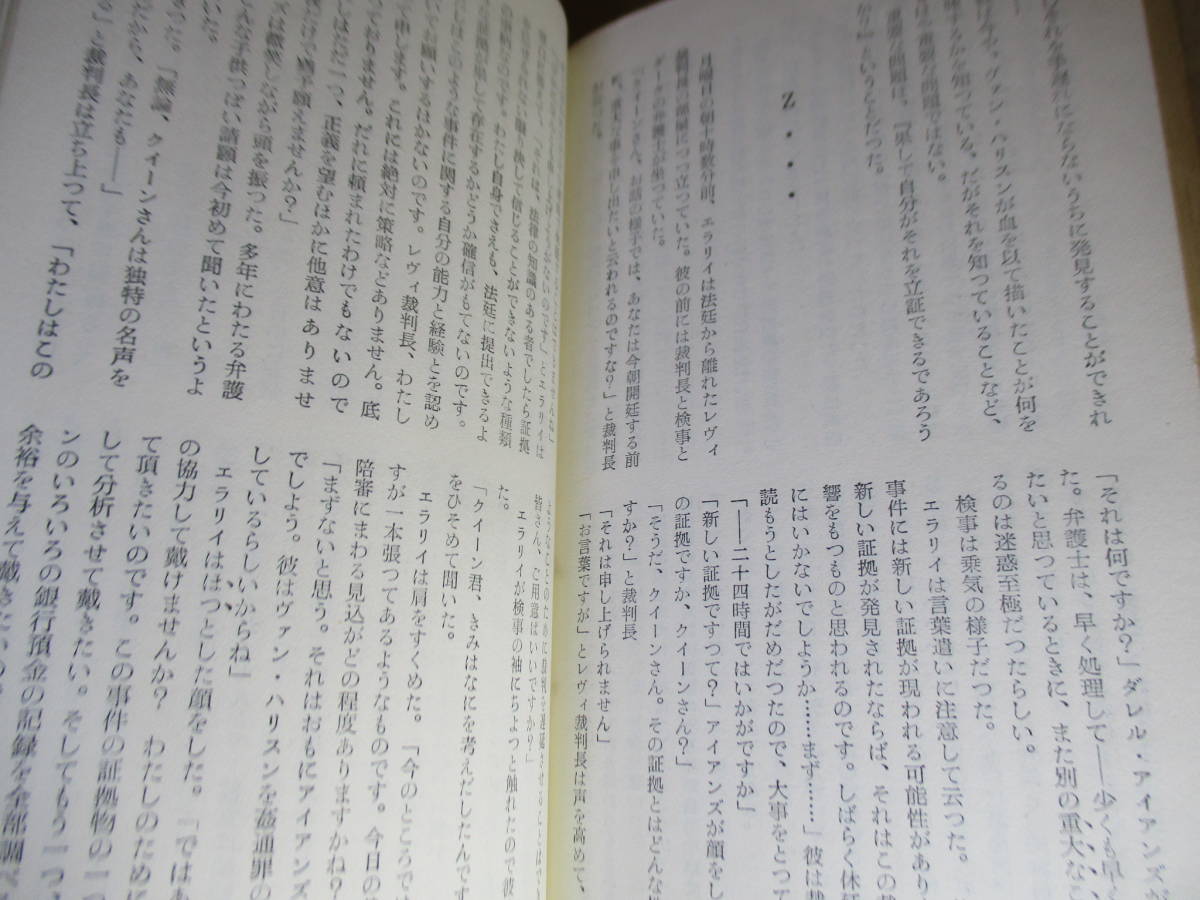 それを手遅れにならないうちに発見することができれ
ば――
けれども、ヴァン・ハリスンが血を以て描いたことが何を
意味するかを知っている。だがそれを知っていることなど、
重要な問題ではない。
重要な問題は、『果して自分がそれを立証できるであろう
か？』ということだった。
Z・・・
月曜日の朝十時数分前、エラリイは法廷から離れたレヴィ
裁判長の部屋につっ立っていた。彼の前には裁判長と検事と
ダークの弁護士が坐っていた。
「クィーンさん、お話の様子では、あなたは今朝開廷する前
に、重大な事を申し出たいと云われるのですな？」と裁判長
「それは何ですか？」ダレル・アイアンズが
た。弁護士は、早く処理して――少くも早
たいと思っているときに、また別の重大なこ
るのは迷惑至極だったらしい。
検事は乗気の様子だった。
エラリイは言葉遣いに注意して云った。
事件には新しい証拠が現われる可能性があり
新しい証拠が発見されたならば、それはこの
響をもつものと思われるのです。しばらく休
にはいかないでしようか……まず……」彼は裁
読もうとしたがだめだつたので、大事をとつて
「――二十四時間ではいかがですか」
「新しい証拠ですつて？」アイアンズが顔をし
の証拠ですか、クィーンさん？」
「そうだ、クイーンさん。その証拠とはどんな
すか？」と裁判長
「それは申し上げられません」
「お言葉ですが」とレヴィ裁判長は声を高めて、
「それは、法律の知識のある者でしたら証拠
決して信じることができないような種類
のものです。わたし自身でさえも、法廷に提出できるよ
うな証拠が果して存在するかどうか確信がもてないのです。
わたしはこのような事件に関する自分の能力と経験とを認め
てお願いするほかないのです。レヴィ裁判長、わたし
は申します。これには絶対に策略などありません。底
っておりません。だれに頼まれたわけでもないので
しはただ一つ、正義を望むほかに他意はありませ
だけ猶予願えませんか？」
ズは微笑しながら頭を振つた。多年にわたる弁護
こんな子供っぽい請願は今初めて聞いたというよ
いた。
った。「無論、クイーンさんは独特の名声を
だから、あなたも――」
」と裁判長は立ち上つて、「わたしはこの
ようなことのために裁判を遅延させることはでき
皆さん、ご用意はいいですか？」
エラリイが検事の袖にちよつと触れたので彼
た。
「クイーン君、きみはなにを考えだしたんです
をひそめて聞いた。
エラリイは肩をすくめた。「今のところで
すが一本張つてあるようなものです。今日の
陪審にまわる見込がどの程度ありますかね？
「まずないと思う。それはおもにアイアンズ
でしよう。彼はヴァン・ハリスンを姦通罪の
しているらしいからね」
エラリイははつとした顔をした。「ではあ
の協力して戴けませんか？　わたしのために
て頂きたいのです。この事件の証拠物の一つ
して分析させて戴きたい。そしてもう一つ
ンのいろいろの銀行預金の記録を全部調べ
余裕を与えて戴きたいの